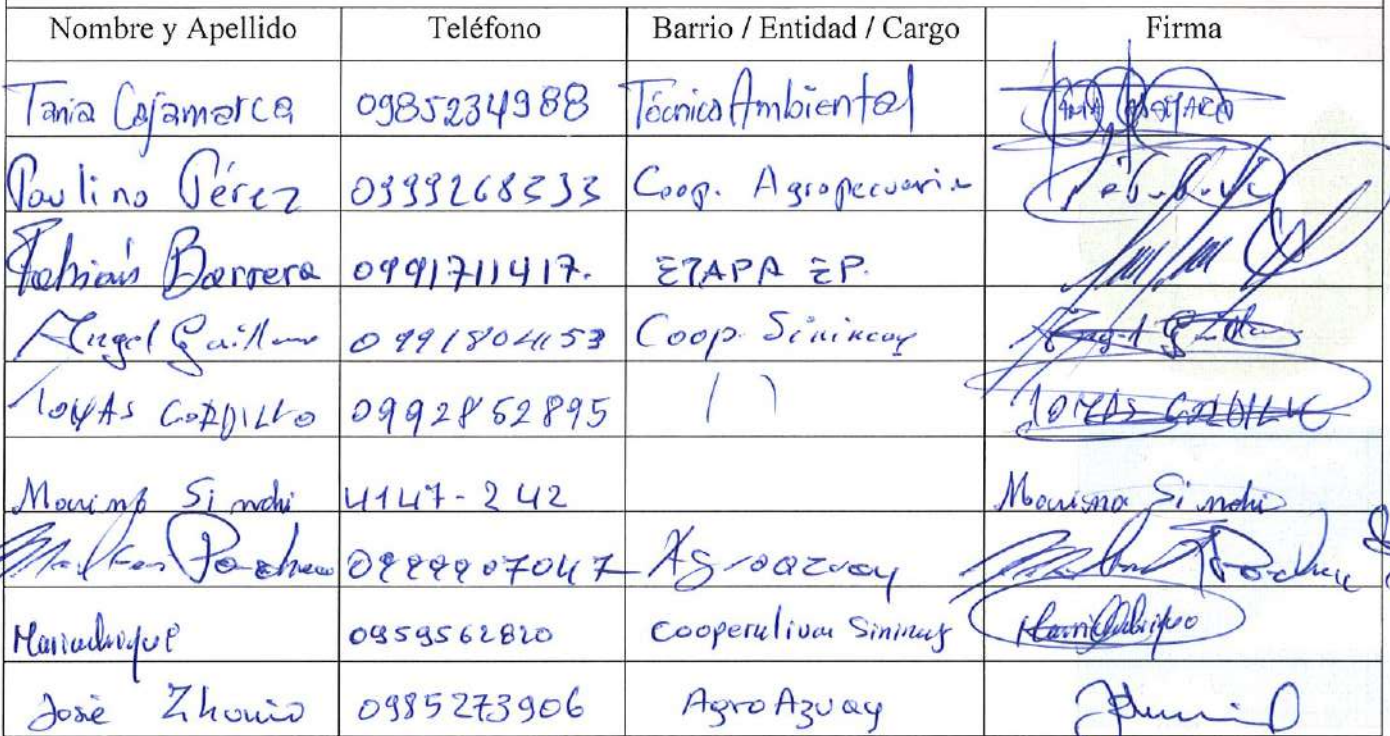 Nombre y Apellido Teléfono Barrio / Entidad / Cargo Firma
Tania Cajamarca 0985234988 Técnica Ambiental
Paulino Pérez 0999268533 Coop. Agropecuaria
Fabian Barrera 0991711417. ETAPA EP.
Angel Guillermo 0991804153 Coop. Sinincay
TOMAS GORDILLO 0992852895 TOMAS GORDILLO
Sinchi 4147-242 Sinchi
Agroazuay
0959562820 Cooperativa Sinincay
José Zhunio 0985273906 AgroAzuay